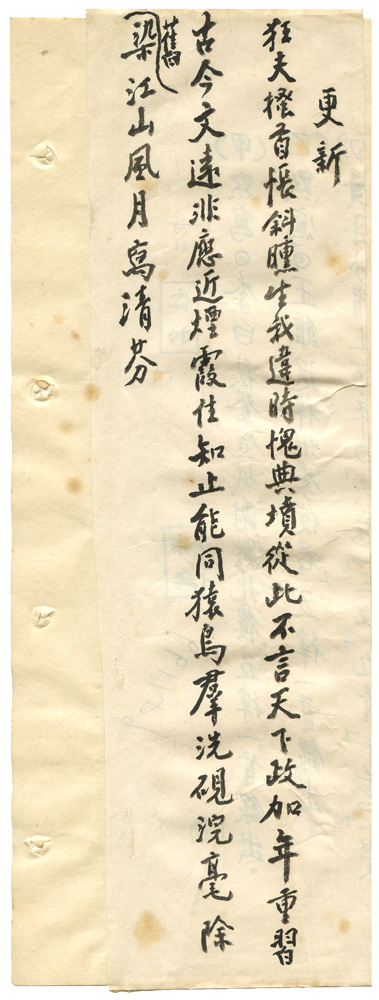 更新
狂夫搔首悵斜曛生我違時愧典墳從此不言天下政加年重習
古今文遠非應近煙霞住知止能同猿鳥羣洗硯浣毫除
舊染江山風月寫清芬